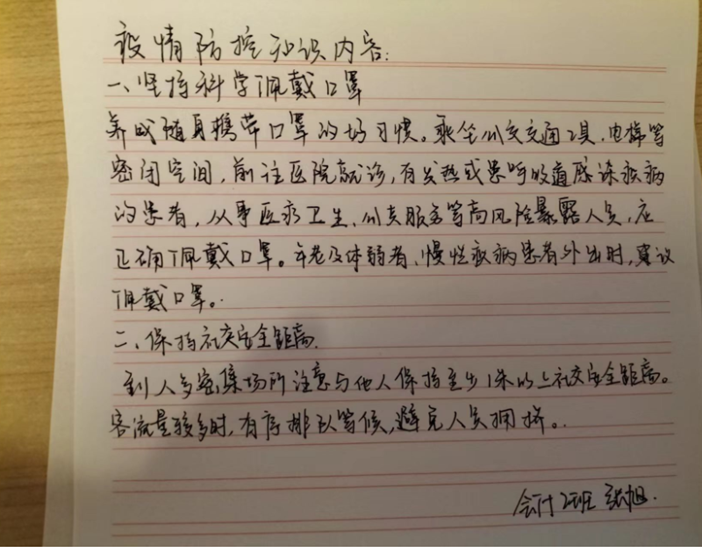 疫情防控知识内容:
一、坚持科学佩戴口罩
养成随身携带口罩的好习惯。乘坐公交交通工具、电梯等
密闭空间,前往医院就诊,有发热或患呼吸道感染疾病
的患者,从事医疗卫生、公共服务等高风险暴露人员,应
正确佩戴口罩。年老及体弱者、慢性疾病患者外出时,建议
佩戴口罩。
二、保持社交安全距离.
到人多密集场所注意与他人保持至少1米以上社交安全距离。
客流量较多时,有序排队等候,避免人员拥挤。
会计2班 张旭.